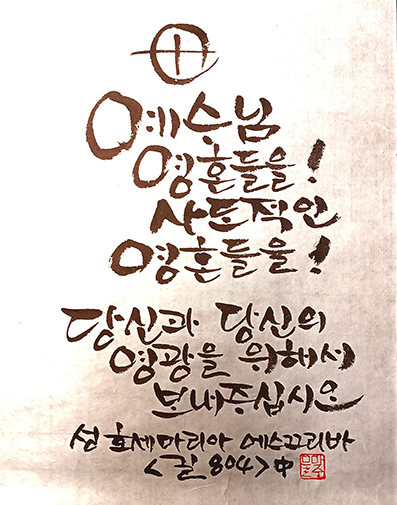 예수님
영혼들을!
사도적인
영혼들을!
당신과 당신의
영광을 위해서
보내주십시오
성 호세마리아 에스끄리바
<길 804> 中